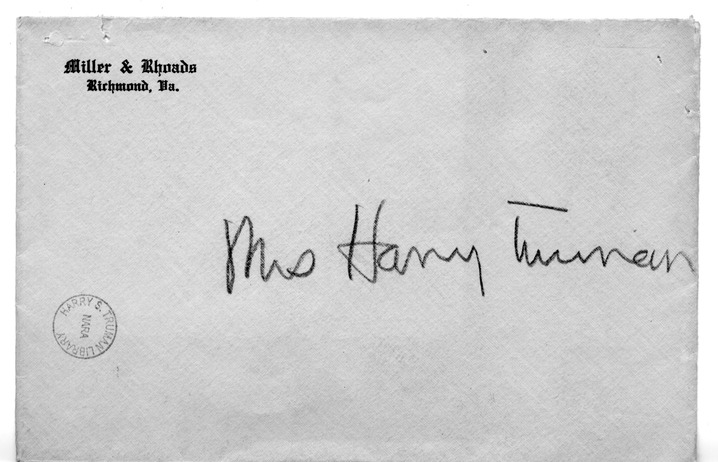 Miller & Rhoads
Richmond, Va.
Mrs Harry Truman
HARRY S. TRUMAN LIBRARY
NARA